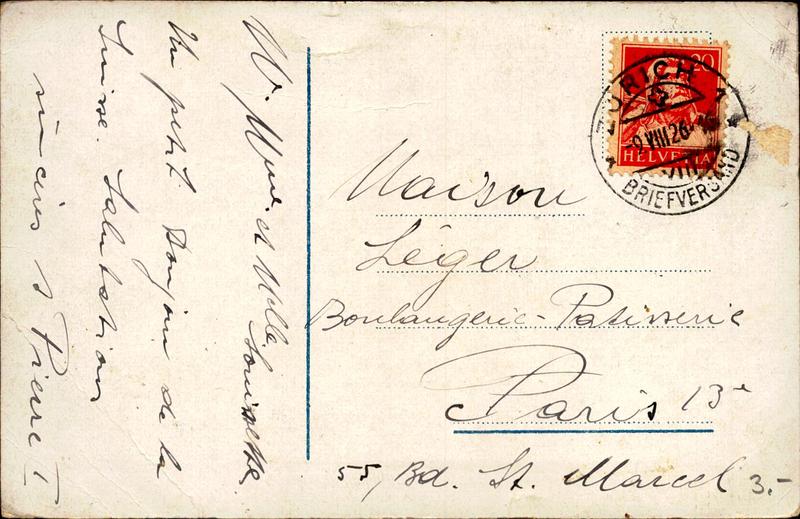 Mr. Mme. et Mlle. Louisette
Un petit Bonjour de la
Suisse. Salutations
sincères s Pierre T
20
HELVETIA
ZÜRICH 1
9.VIII.26
BRIEFVERSAND
Maison
Léger
Boulangerie-Patisserie
Paris 13e
55, Bd. St. Marcel
3.-